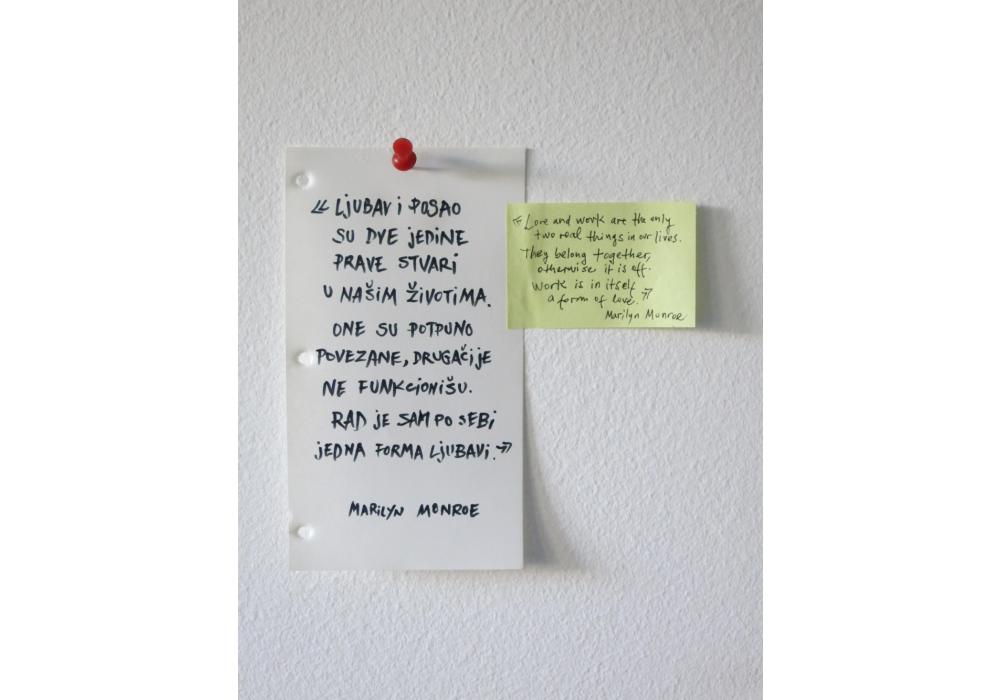 « LjUBAV i POSAO
SU DVE jEDiNE
PRAVE STVARi
U NAŠIM ŽIVOTIMA.
ONE SU POTPUNO
POVEZANE, DRUGAČijE
NE FUNKCiONiŠU.
RAD jE SAM PO SEBi
jEDNA FORMA LjUBAVi.»
MARiLYN MONROE
«Love and work are the only
two real things in our lives.
They belong together,
otherwise it is off.
Work is in itself
a form of love.»
Marilyn Monroe